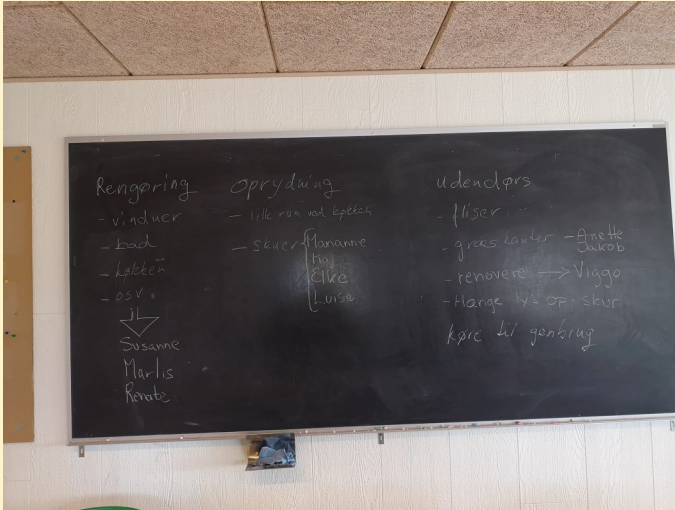 Rengøring
- vinduer
- bad
- køkken
- osv.
Susanne
Marlis
Renate
Oprydning
- lille rum ved køkken
- skuer
Marianne
Maj
Elke
Luise
Udendørs
- fliser
- græskanter - Anette
Jakob
- renovere → Viggo
- Hænge lys op i skur
køre til genbrug